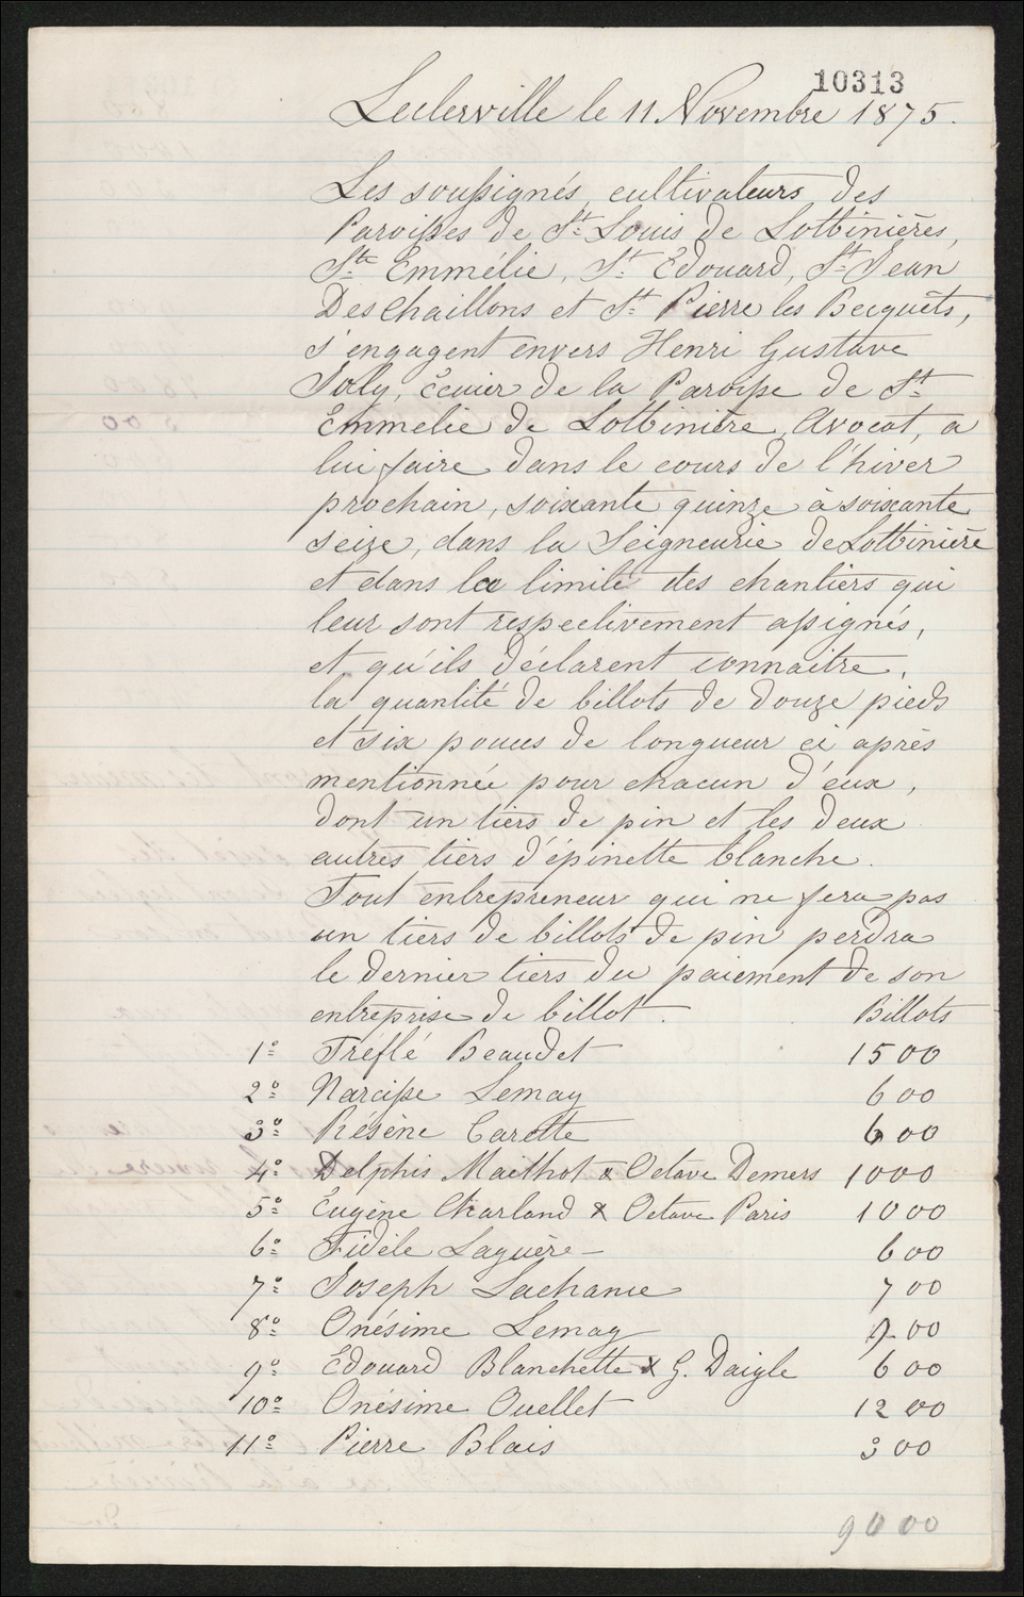 10313
Leclerville le 11 Novembre 1875.
Les soussignés, cultivateurs des
Paroisses de St. Louis de Lotbinières,
Ste Emmélie, St. Edouard, St. Jean
Deschaillons et St. Pierre les Becquêts,
s'engagent envers Henri Gustave
Joly, Écuier de la Paroisse de St.
Emmelie de Lotbinière, Avocat, a
lui faire dans le cours de l'hiver
prochain, soixante quinze à soixante
seize, dans la Seigneurie de Lotbinière
et dans la limite des chantiers qui
leur sont respectivement assignés,
et qu'ils déclarent connaitre,
la quantité de billots de douze pieds
et six pouces de longueur ci après
mentionnée pour chacun d'eux,
dont un tiers de pin et les deux
autres tiers d'épinette blanche.
Tout entrepreneur qui ne fera pas
un tiers de billots de pin perdra
le dernier tiers du paiement de son
entreprise de billot. Billots
1º Tréflé Beaudet 1500
2º Narcisse Lemay 600
3º Résène Carette 600
4º Delphis Maithot & Octave Demers 1000
5º Eugène Charland & Octave Paris 1000
6º Fidèle Laguère 600
7º Joseph Lachance 700
8º Onésime Lemay 900
9º Edouard Blanchette & G. Daigle 600
10º Onésime Ouellet 1200
11º Pierre Blais 300
9000